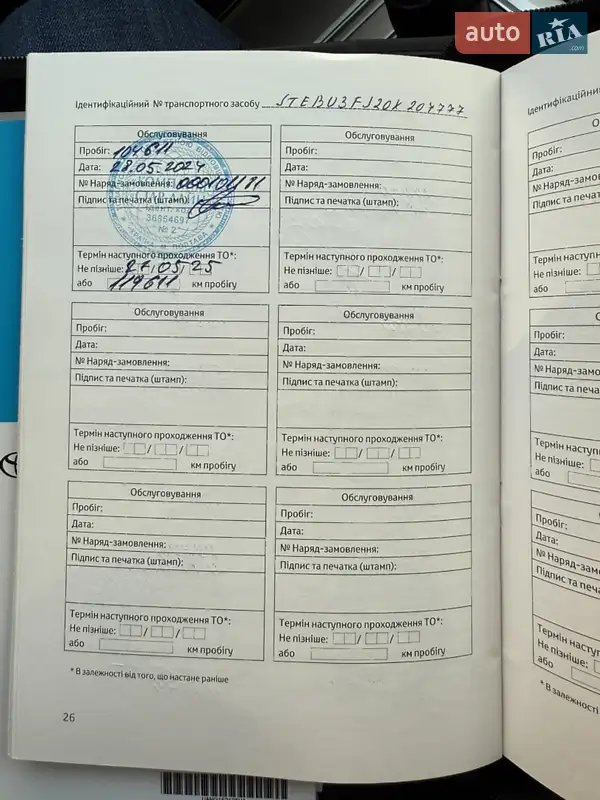 auto RIA .com
Ідентифікаційний № транспортного засобу JTEBU3FJ20K204777
Обслуговування
Пробіг: 104611
Дата: 28.05.2024
№ Наряд-замовлення:
Підпис та печатка (штамп):
36864697
№ 2
Термін наступного проходження ТО*:
Не пізніше: 27/05/25
або 119611 км пробігу
Обслуговування
Пробіг:
Дата:
№ Наряд-замовлення:
Підпис та печатка (штамп):
Термін наступного проходження ТО*:
Не пізніше: / /
або км пробігу
Обслуговування
Пробіг:
Дата:
№ Наряд-замовлення:
Підпис та печатка (штамп):
Термін наступного проходження ТО*:
Не пізніше: / /
або км пробігу
Обслуговування
Пробіг:
Дата:
№ Наряд-замовлення:
Підпис та печатка (штамп):
Термін наступного проходження ТО*:
Не пізніше: / /
або км пробігу
Обслуговування
Пробіг:
Дата:
№ Наряд-замовлення:
Підпис та печатка (штамп):
Термін наступного проходження ТО*:
Не пізніше: / /
або км пробігу
Обслуговування
Пробіг:
Дата:
№ Наряд-замовлення:
Підпис та печатка (штамп):
Термін наступного проходження ТО*:
Не пізніше: / /
або км пробігу
* В залежності від того, що настане раніше
26
Ідентифікаційний
Пробіг:
Дата:
№ Наряд-замов
Підпис та печа
Термін наступн
Не пізніше:
або
Пробіг:
Дата:
№ Наряд-замо
Підпис та печат
Термін наступн
Не пізніше:
або
Пробіг:
Дата:
№ Наряд-замо
Підпис та печа
Термін наступ
Не пізніше:
або
* В залежності